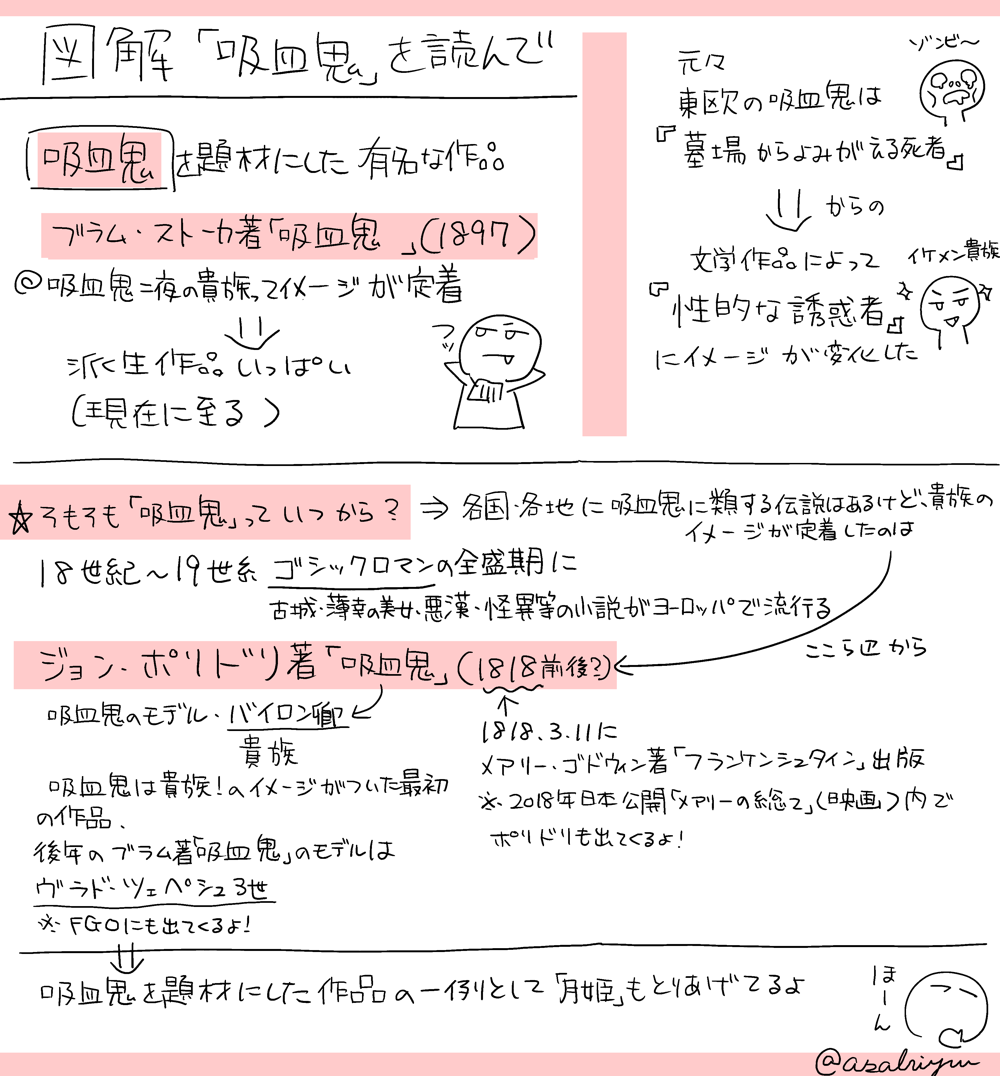 図解「吸血鬼」を読んで
吸血鬼を題材にした有名な作品
ブラム・ストーカ著「吸血鬼 」(1897)
@吸血鬼=夜の貴族ってイメージが定着
派生作品いっぱい
(現在に至る )
フッ
元々
ゾンビ〜
東欧の吸血鬼は
『墓場からよみがえる死者』
からの
文学作品によって
イケメン貴族
『性的な誘惑者』
にイメージが変化した
☆そもそも「吸血鬼」っていつから?
⇒ 各国・各地に吸血鬼に類する伝説はあるけど、貴族の
イメージが定着したのは
18世紀〜19世紀 ゴシックロマンの全盛期に
古城・薄幸の美女、悪漢・怪異等の小説がヨーロッパで流行る
ここら辺から
ジョン・ポリドリ著「吸血鬼」(1818前後?)
吸血鬼のモデル・バイロン卿
貴族
吸血鬼は貴族!のイメージがついた最初
の作品、
後年のブラム著「吸血鬼」のモデルは
ヴラド・ツェペシュ3世
※FGOにも出てくるよ!
↑
1818.3.11に
メアリー・ゴドウィン著「フランケンシュタイン」出版
※2018年日本公開「メアリーの総て」(映画)内で
ポリドリも出てくるよ!
吸血鬼を題材にした作品の一例として「月姫」もとりあげてるよ
ほーん